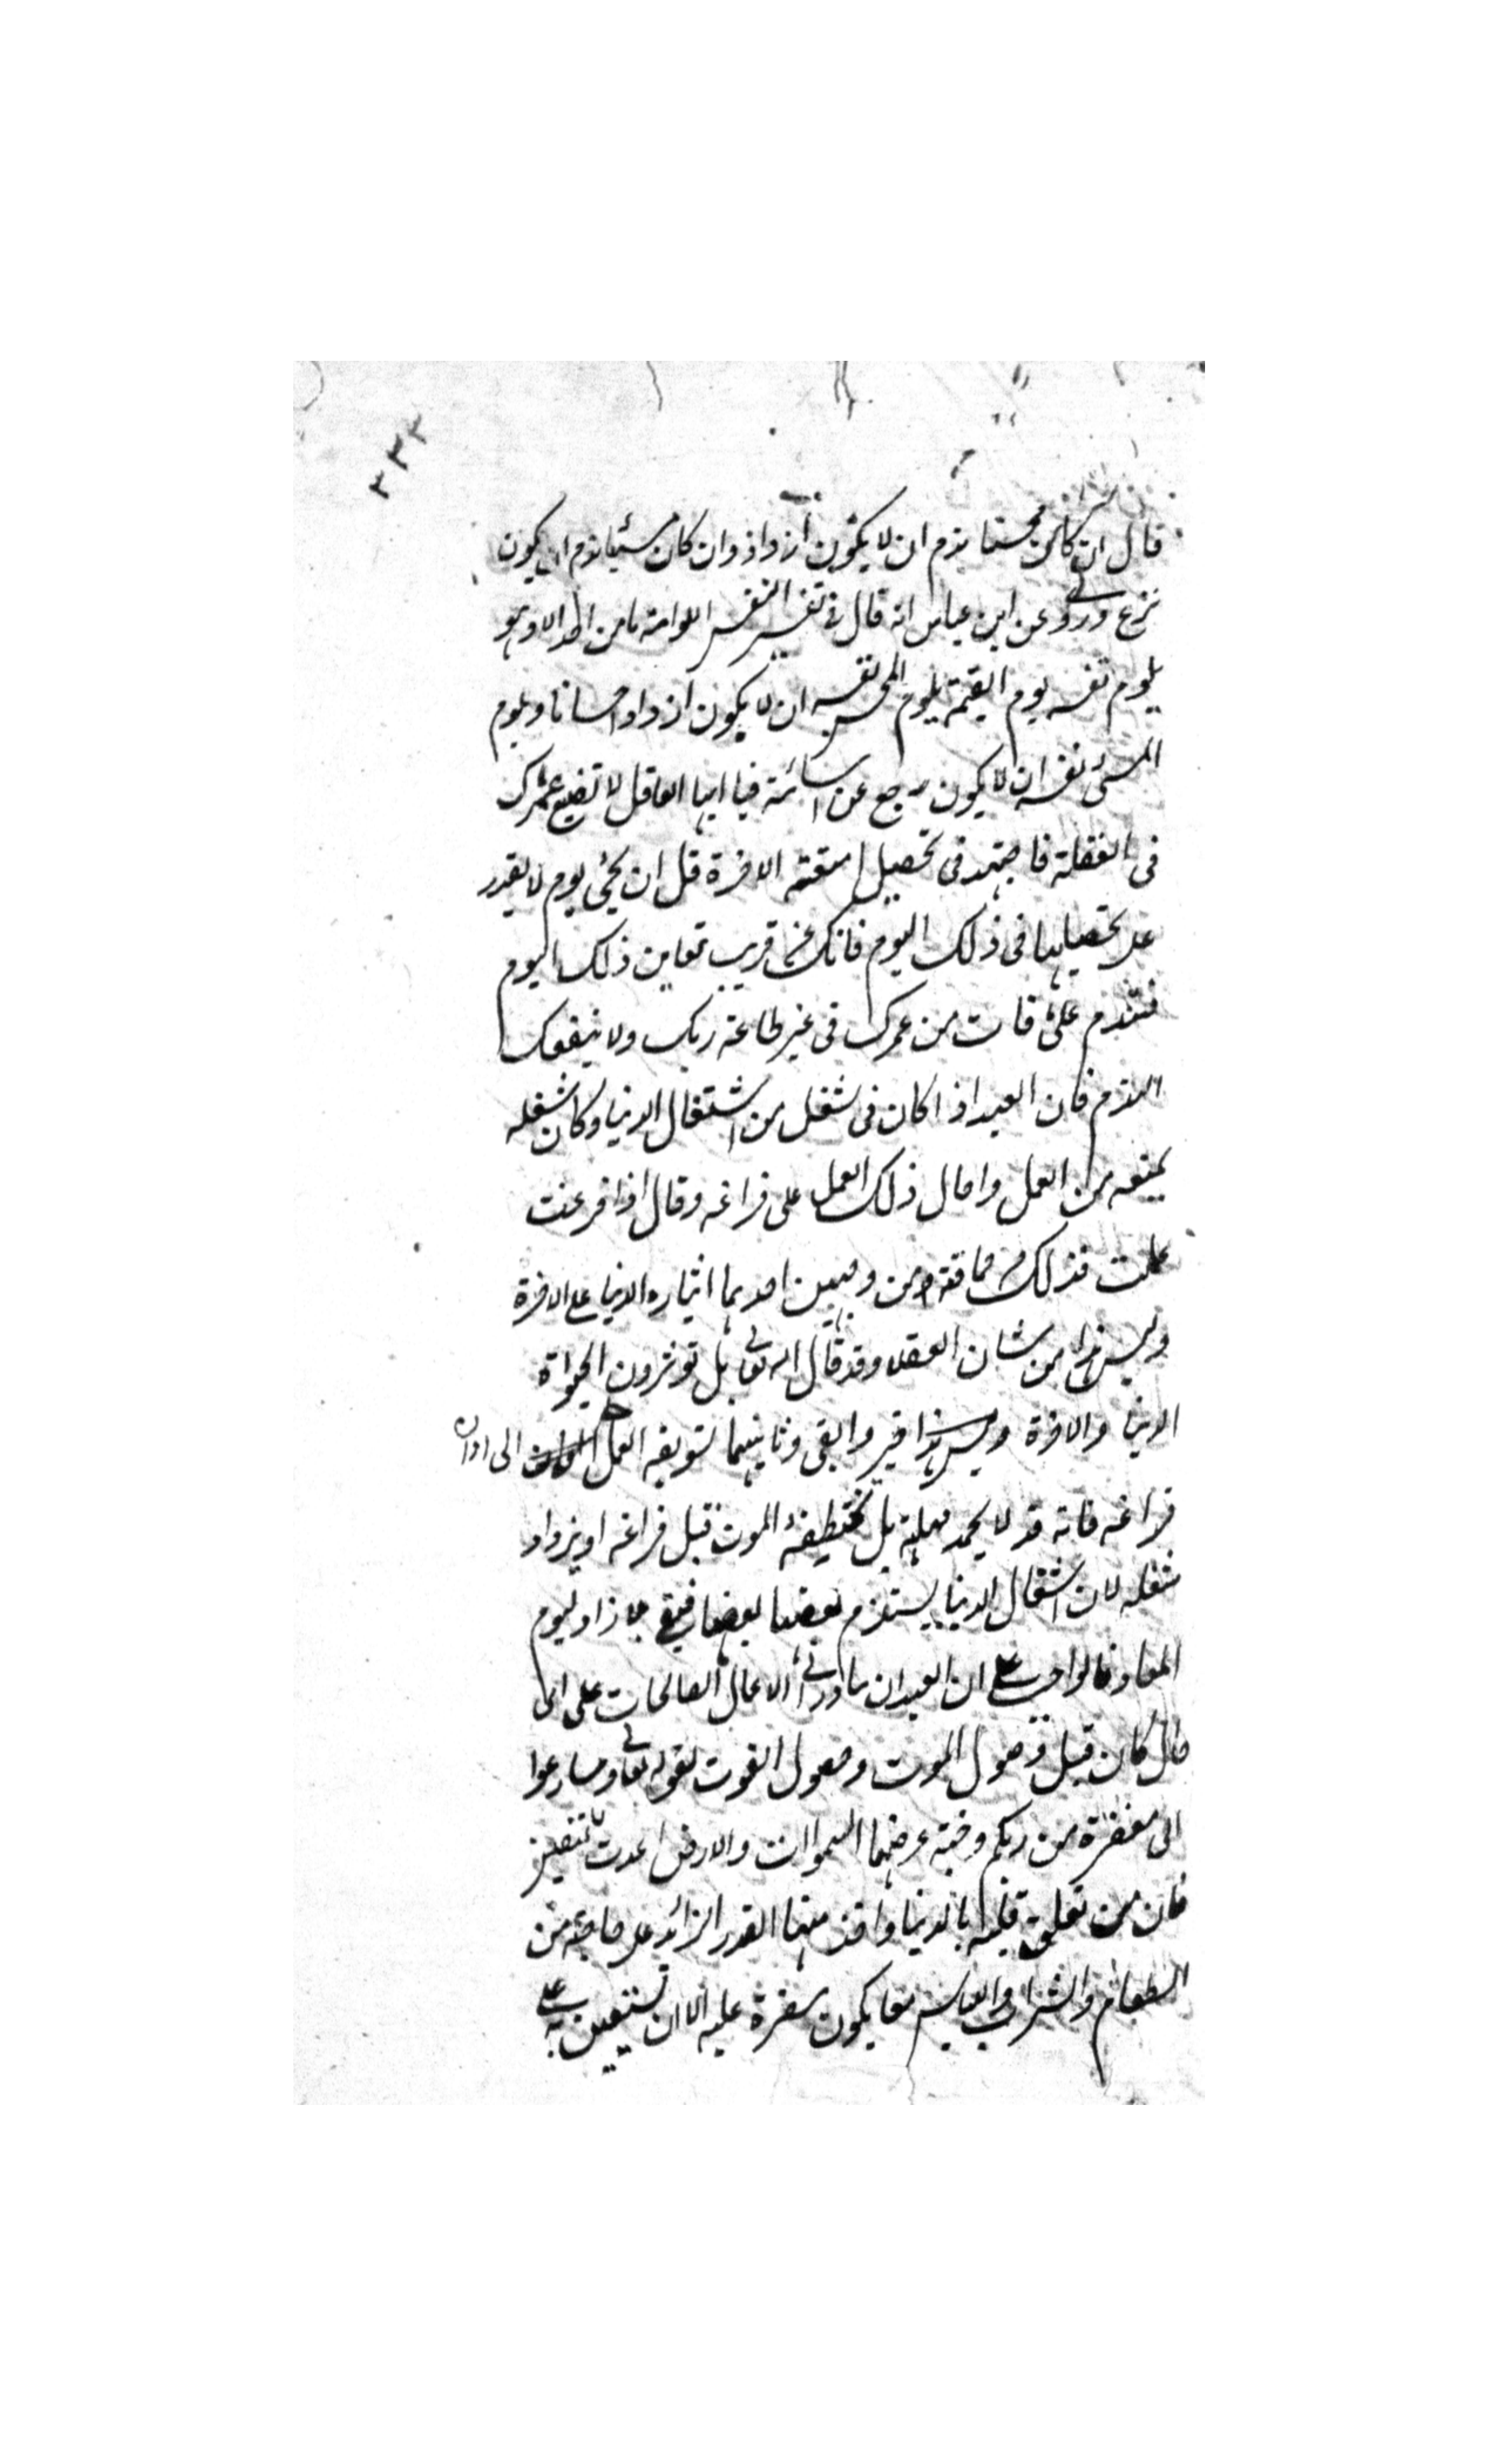 ٣٣٣
قال ان كان محسنا ندم ان لا يكون ازداد وان كان مسيئا ندم ان لا يكون
نزع وروى عن ابن عباس انه قال فى تفسير النفس اللوامة ما من احد الا وهو
يلوم نفسه يوم القيمة يلوم المحسن نفسه ان لا يكون ازداد احسانا ويلوم
المسئ نفسه ان لا يكون رجع عن اسائته فيا ايها العاقل لا تضيع عمرك
فى الغفلة فاجتهد فى تحصيل امتعة الاخرة قبل ان يجئ يوم لا يقدر
على تحصيلها فى ذلك اليوم فانك عن قريب تعاين ذلك اليوم
فتندم على ما فات من عمرك فى غير طاعة ربك ولا ينفعك
الندم فان العبد اذا كان فى شغل من اشتغال الدنيا وكان شغله
يمنعه من العمل واحال ذلك العمل على فراغه وقال اذا فرغت
عملت فذلك من حماقته من وجهين احدهما ايثاره الدنيا على الاخرة
وليس هذا من شان العقلا وقد قال الله تعالى بل تؤثرون الحيواة
الدنيا والاخرة خير وابقى وثانيهما تسويفه العمل الى اوان
فراغه فانه قد لا يجد مهلة بل يختطفه الموت قبل فراغه او يزداد
شغله لان اشتغال الدنيا يستلزم بعضها بعضا فيبقى بلا زاد ليوم
المعاد فالواجب على العبد ان يبادر الى الاعمال الصالحات على اى
حال كان قبل وصول الموت وحصول الفوت لقوله تعالى وسارعوا
الى مغفرة من ربكم وجنة عرضها السموات والارض اعدت للمتقين
فان من تعلق قلبه بالدنيا واخذ منها القدر الزائد على حاجته من
الطعام والشراب واللباس يكون مضرة عليه الا ان يستعين به على